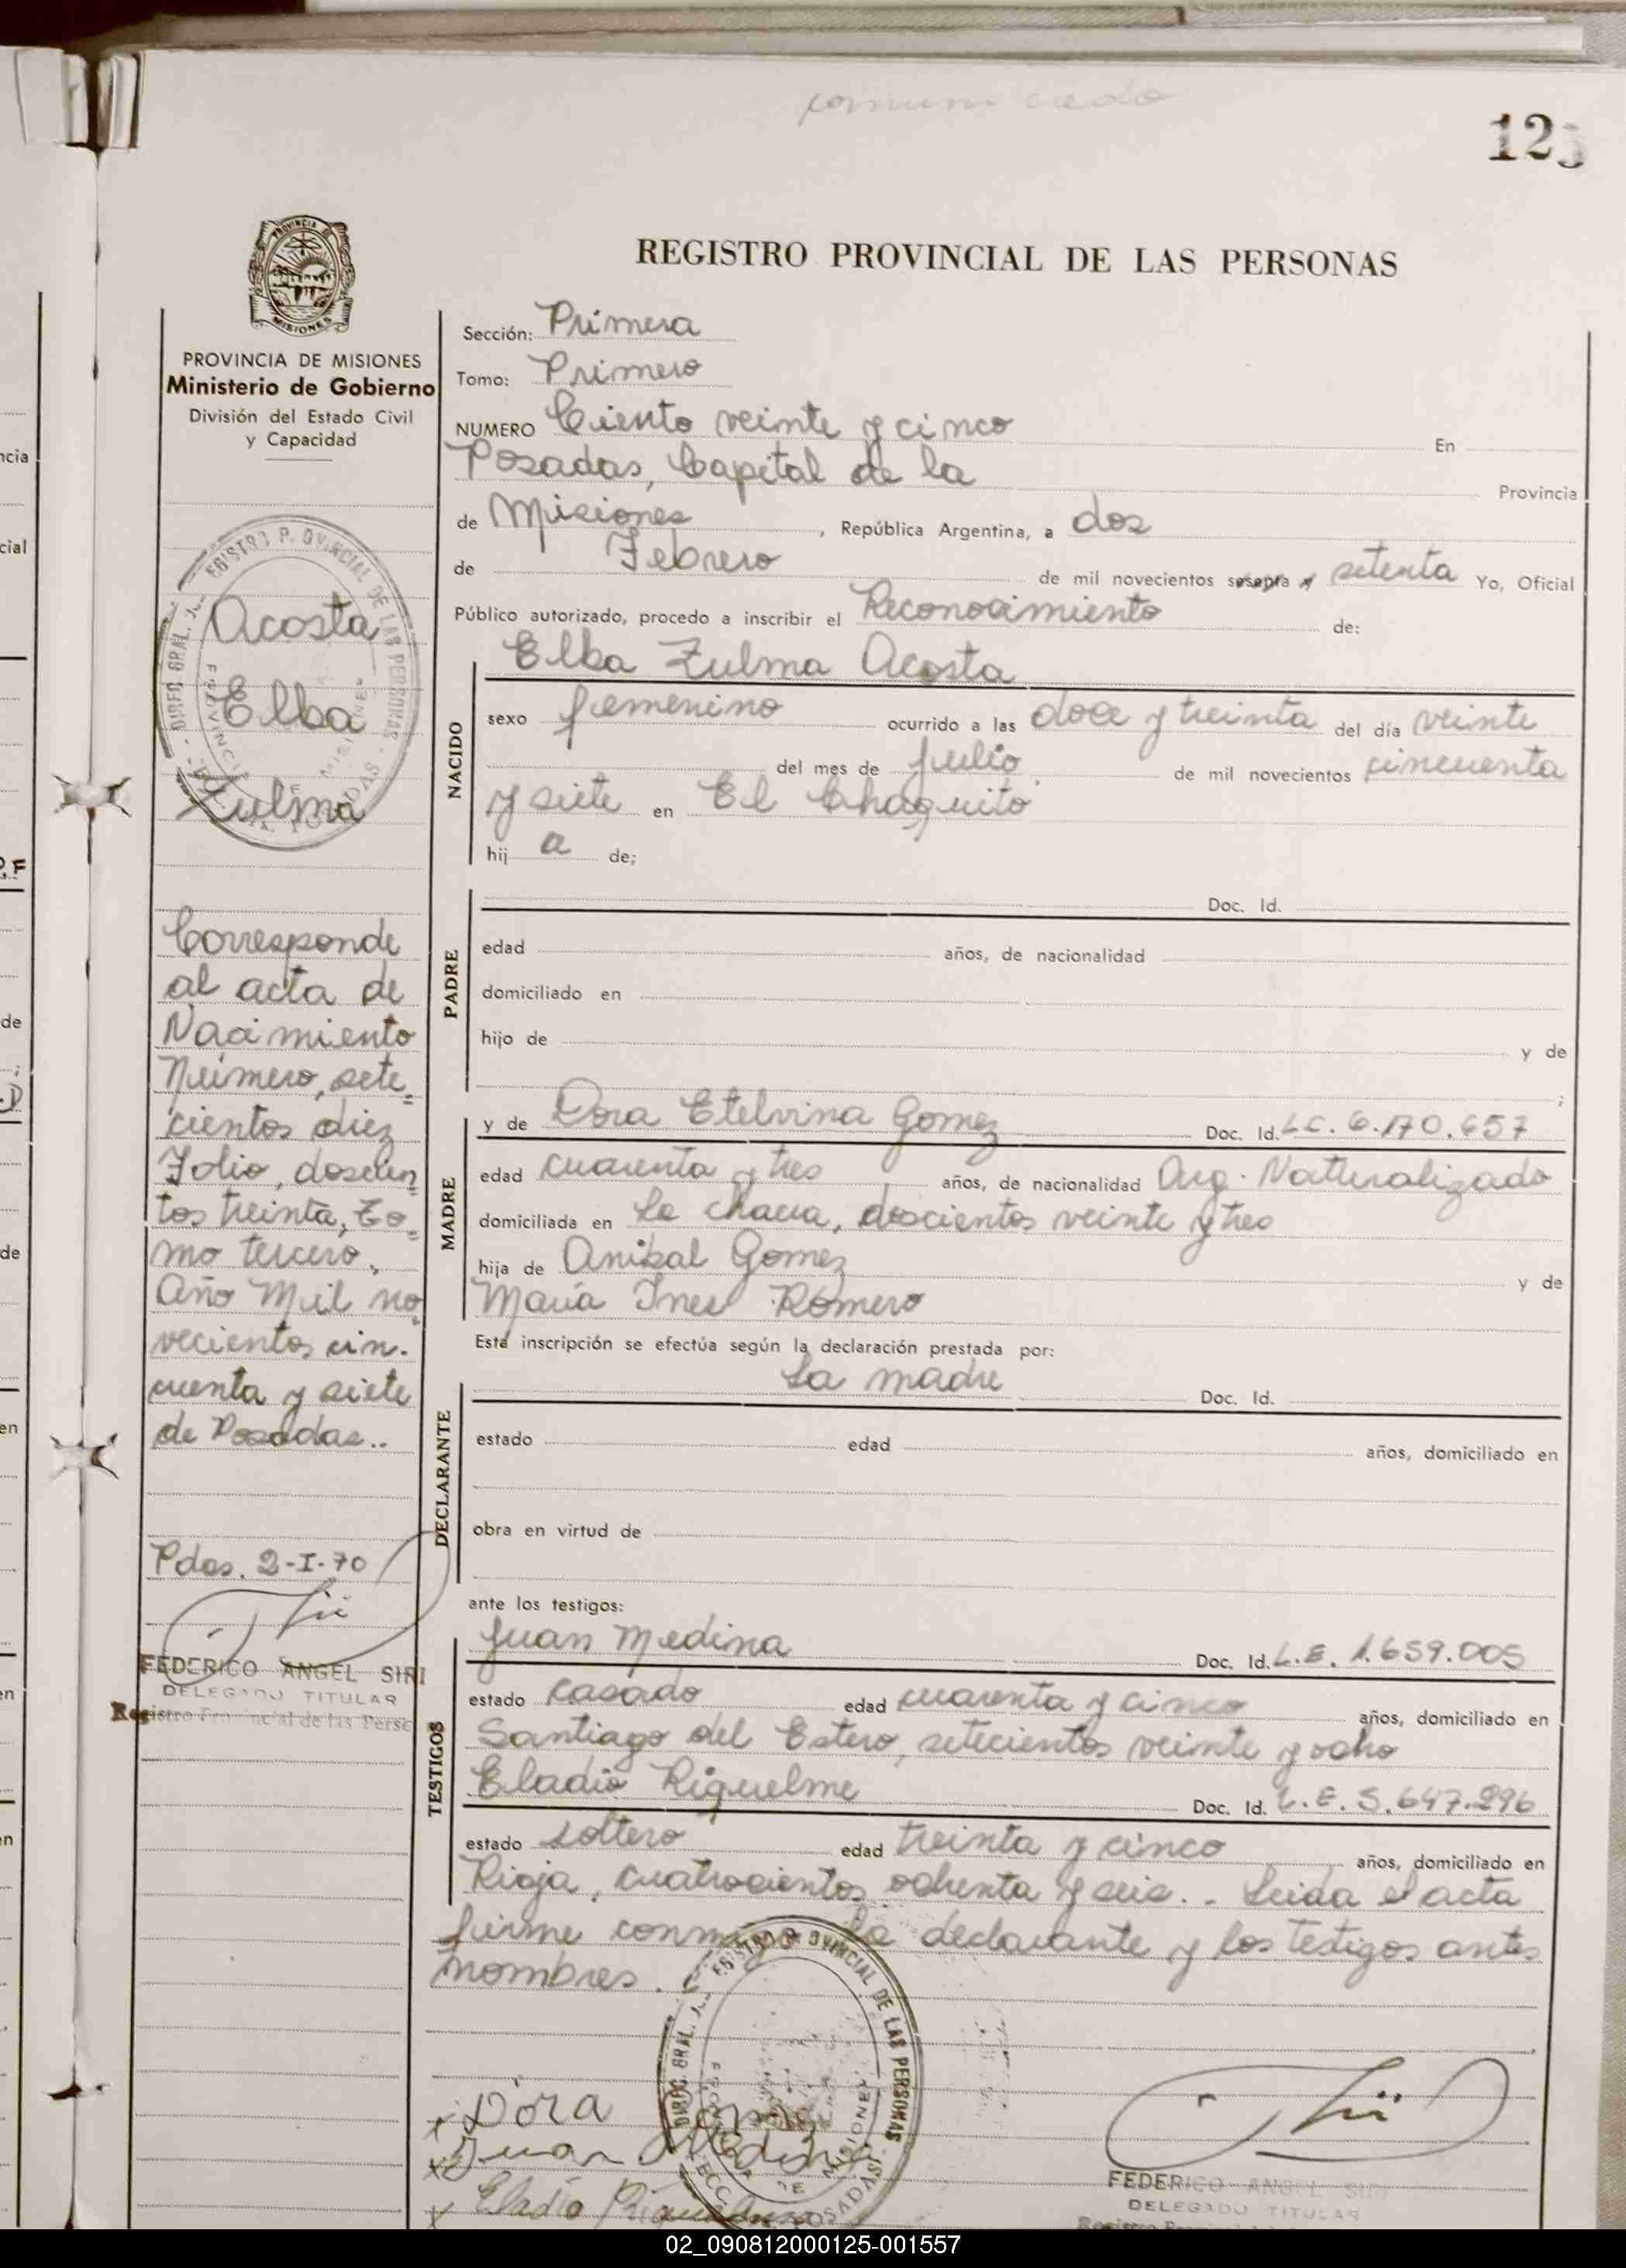 comunicado
125
REGISTRO PROVINCIAL DE LAS PERSONAS
PROVINCIA DE MISIONES
MISIONES
PROVINCIA DE MISIONES
Ministerio de Gobierno
División del Estado Civil
y Capacidad
Acosta
Elba
Zulma
Corresponde
al acta de
Nacimiento
Número, sete=
cientos diez
Folio, doscien
tos treinta, To=
mo tercero,
Año Mil no
vecientos cin.
cuenta y siete
de Posadas..
Pdas. 2-I-70
FEDERICO ANGEL SIRI
DELEGADO TITULAR
Registro Provincial de las Perso
Sección: Primera
Tomo: Primero
NUMERO Ciento veinte y cinco En
Posadas, Capital de la Provincia
de Misiones, República Argentina, a dos
de Febrero de mil novecientos setenta Yo, Oficial
Público autorizado, procedo a inscribir el Reconocimiento de:
Elba Zulma Acosta
NACIDO
sexo femenino ocurrido a las doce y treinta del día veinte
del mes de julio de mil novecientos cincuenta
y siete en El Chaquito
hij a de;
PADRE
Doc. Id.
edad años, de nacionalidad
domiciliado en
hijo de y de
;
MADRE
y de Dora Etelvina Gomez Doc. Id. L.C. 6.170.657
edad cuarenta y tres años, de nacionalidad Arg. Naturalizado
domiciliada en La chacra, doscientos veinte y tres
hija de Anibal Gomez y de
María Ines Romero
Esta inscripción se efectúa según la declaración prestada por:
DECLARANTE
La madre Doc. Id.
estado edad años, domiciliado en
obra en virtud de
ante los testigos:
TESTIGOS
Juan Medina Doc. Id. L.E. 1.659.005
estado casado edad cuarenta y cinco años, domiciliado en
Santiago del Estero, setecientos veinte y ocho
Eladio Riquelme Doc. Id. L.E. 5.647.296
estado soltero edad treinta y cinco años, domiciliado en
Rioja, cuatrocientos ochenta y seis.. Leida el acta
firme conmigo la declarante y los testigos antes
nombres.
Dora
Juan Medina
Eladio Riquelme
FEDERICO ANGEL SIRI
DELEGADO TITULAR
02_090812000125-001557